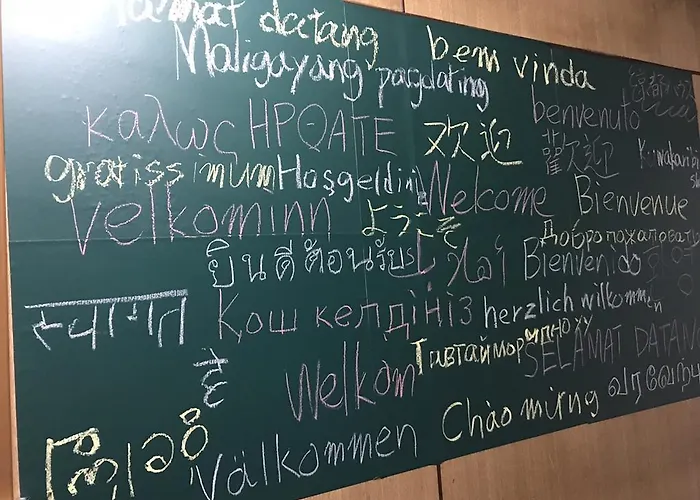 datang
Maligayang pagdating
bem vinda
benvenuto
καλως ΗΡΘΑΤΕ
欢迎
歡迎
gratissimum
Hoşgeldiniz
Welcome
Bienvenue
Velkominn
ようこそ
Добро пожаловать
ยินดีต้อนรับ
Bienvenido
स्वागत
है
Қош келдіңіз
herzlich willkommen
Тавтай морилно уу
SELAMAT DATANG
Welkom
Chào mừng
Välkommen